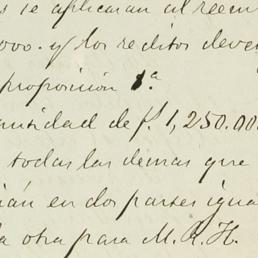 s se aplicarán al reem
000. y los reditos deve
proposición 1ª.
antidad de f. 1,250.000
todas las demas que
ián en dos partes igua
la otra para M. R. H.